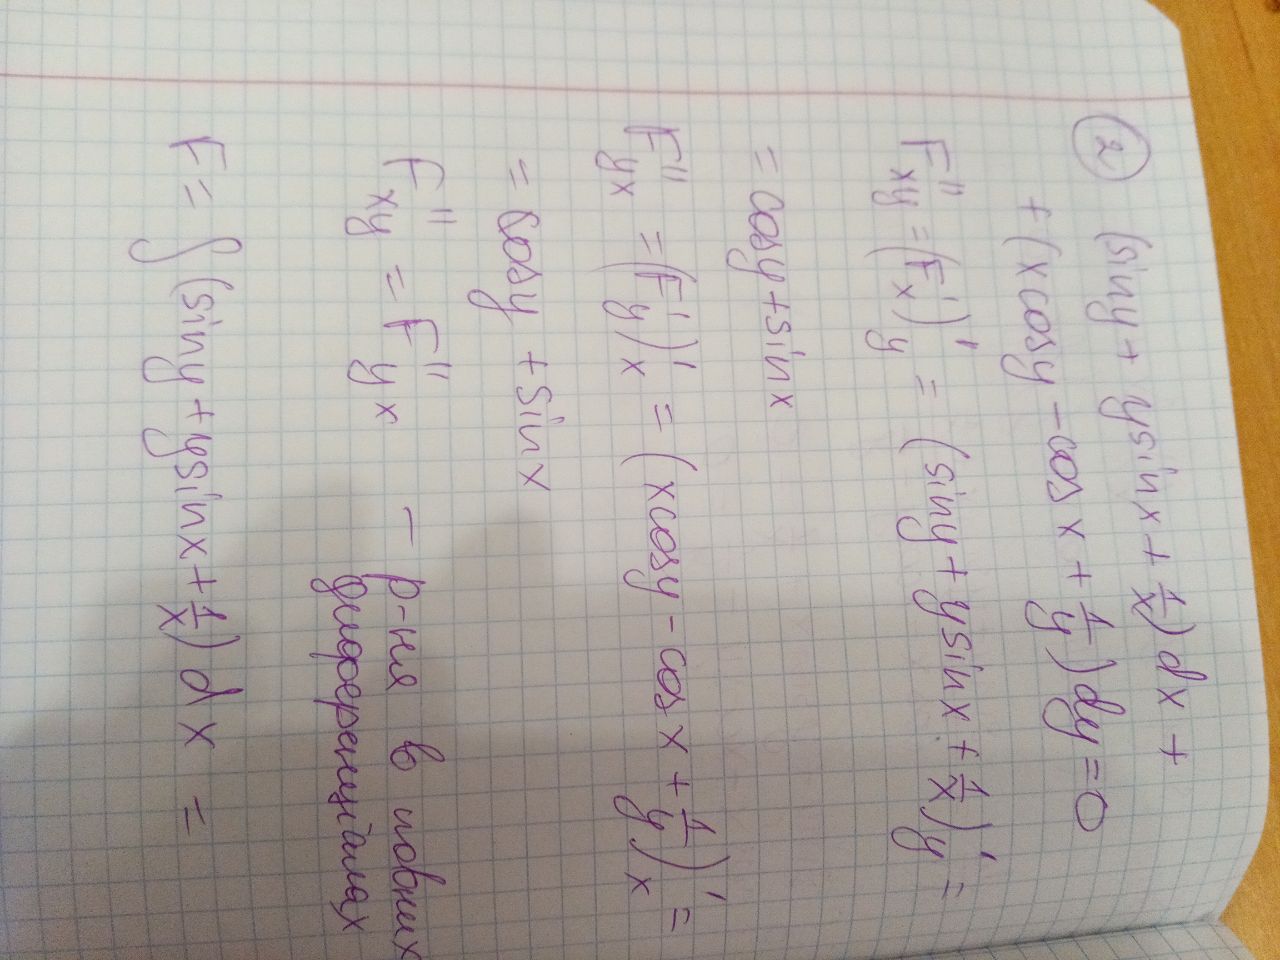 ② (siny + ysinx + 1/x) dx +
+ (xcosy - cosx + 1/y) dy = 0
F''xy = (F'x)'y = (siny + ysinx + 1/x)'y =
= cosy + sinx
F''yx = (F'y)'x = (xcosy - cosx + 1/y)'x =
= cosy + sinx
F''xy = F''yx — р-ня в повних
диференціалах
F = ∫ (siny + ysinx + 1/x) dx =